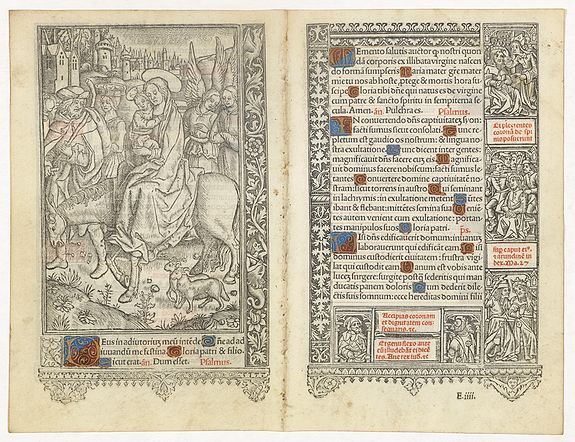 Deus in adiutoriuʒ meū intēde Dñe ad ad
iuuandū me festina Gloria patri & filio
Sicut erat añ. Dum esset. Psalmus.
MEmento salutis auctor ꝙ nostri quon
dā corporis ex illibata virgine nascen
do formā sumpseris Maria mater grē mater
mie tu nos ab hoste ꝓtege & mortis hora su-
scipe Gloria tibi dñe qui natus es de virgine
cum patre & sancto spiritu in sempiterna se
cula. Amen. añ. Pulchra es. Psalmus.
IN conuertendo dñs captiuitateʒ syon:
facti sumus sicut consolati. Tunc re-
pletum est gaudio os nostrum: & lingua no-
stra exultatione Tunc dicent inter gentes:
magnificauit dñs facere cuʒ eis. Magnifica-
uit dominus facere nobiscum: facti sumus le
tantes Conuerte domine captiuitatē no-
stram: sicut torrens in austro Qui seminant
in lachrymis: in exultatione metent Eūtes
ibant & flebant: mittētes semina sua Veniē-
tes autem venient cum exultatione: portan-
tes manipulos suos Gloria patri. p̄s.
NIsi dñs edificauerit domum: inuanuʒ
laborauerunt qui edificāt eam Nisi
dominus custodierit ciuitatem: frustra vigi-
lat qui custodit eam Vanum est vobis ante
lucem surgere: surgite postꝗ̄ sederitis qui man
ducatis panem doloris Cum dederit dile-
ctis suis somnum: ecce hereditas domini filii
Et plectentes
coronā de spi-
nis posuerunt
sup caput eiꝰ
& arundinē in
dex. Ma. 27
Accipias coronam
et dignitatem con-
seruaris. &c.
Et genu flexo ante
eū illudebāt ei dicē
tes. Aue rex iud. &c
E.iiii.